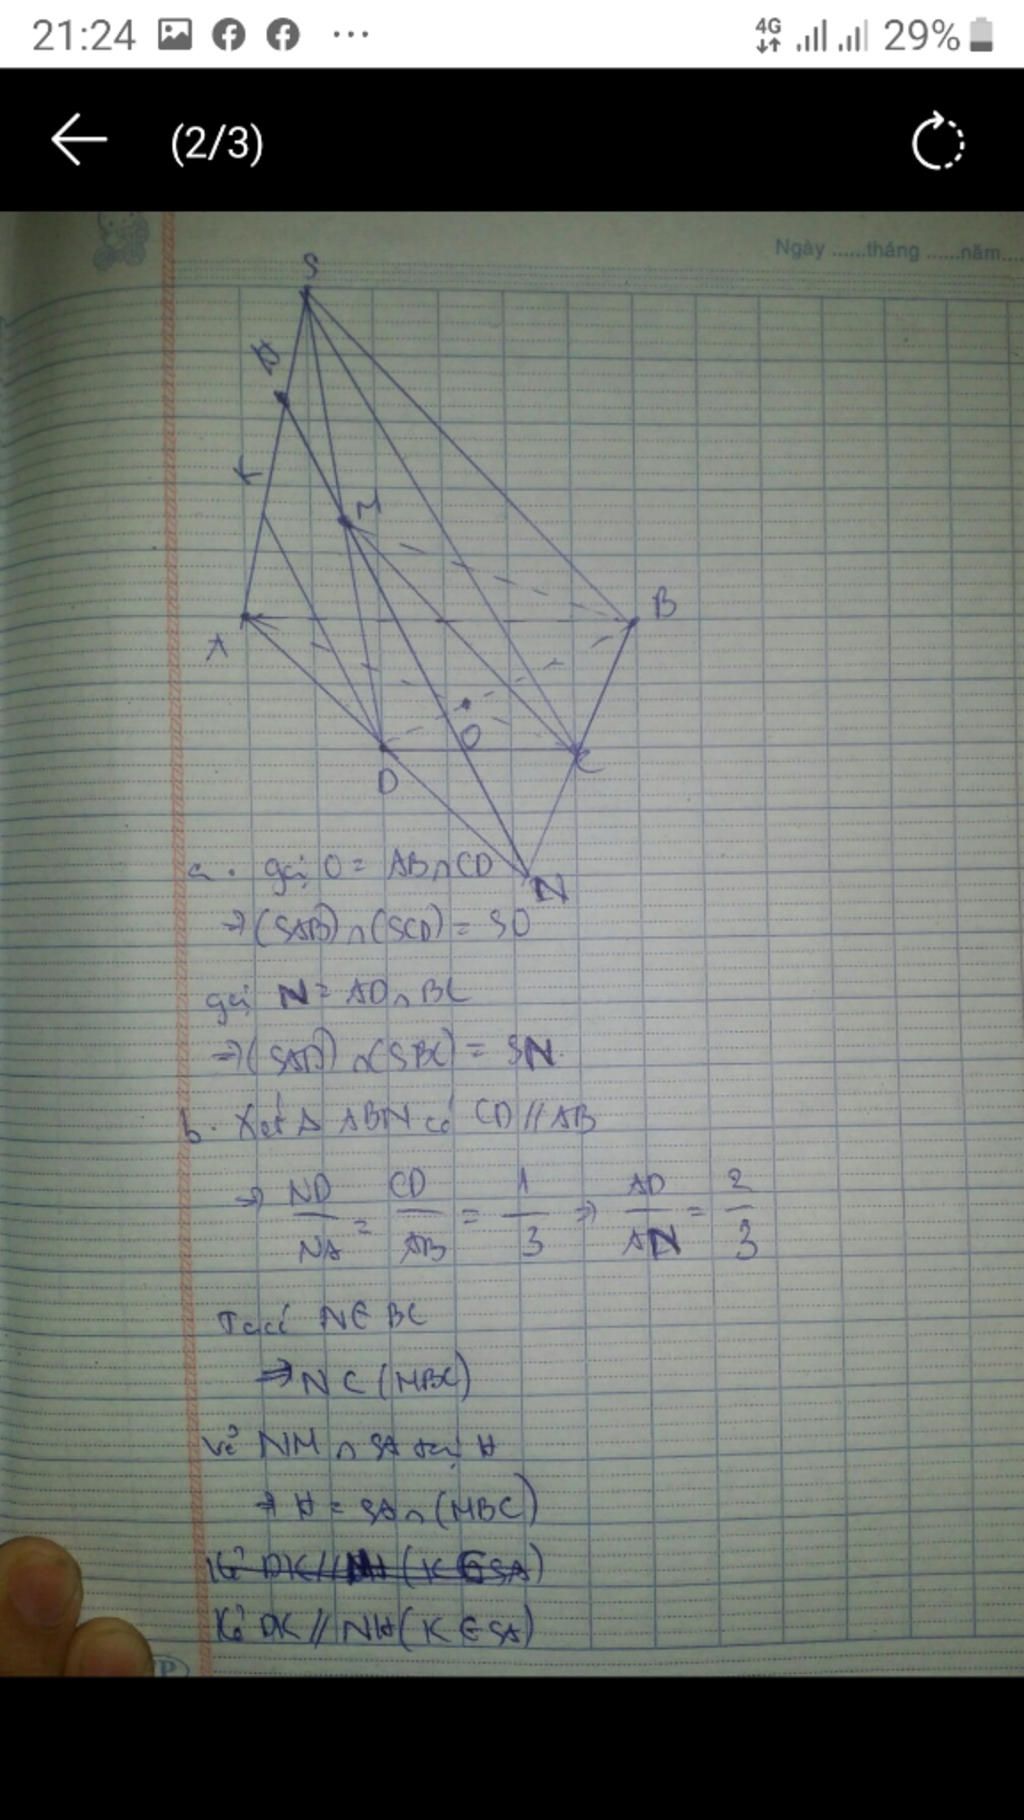 21:24 ... 4G 29%
(2/3)
Ngày ......tháng ......năm....
S
H
K
M
B
A
O
D
C
N
a. gọi O = AB∩CD
⇒ (SAB)∩(SCD) = SO
gọi N = AD∩BC
⇒ (SAD)∩(SBC) = SN.
b. Xét Δ ABN có CD // AB
⇒ ND/NA = CD/AB = 1/3 ⇒ AD/AN = 2/3
Ta có N∈BC
⇒ N⊂(MBC)
Vẽ NM ∩ SA tại H
⇒ H = SA∩(MBC)
Kẻ DK // NH (K∈SA)
Kẻ DK // NH (K∈SA)